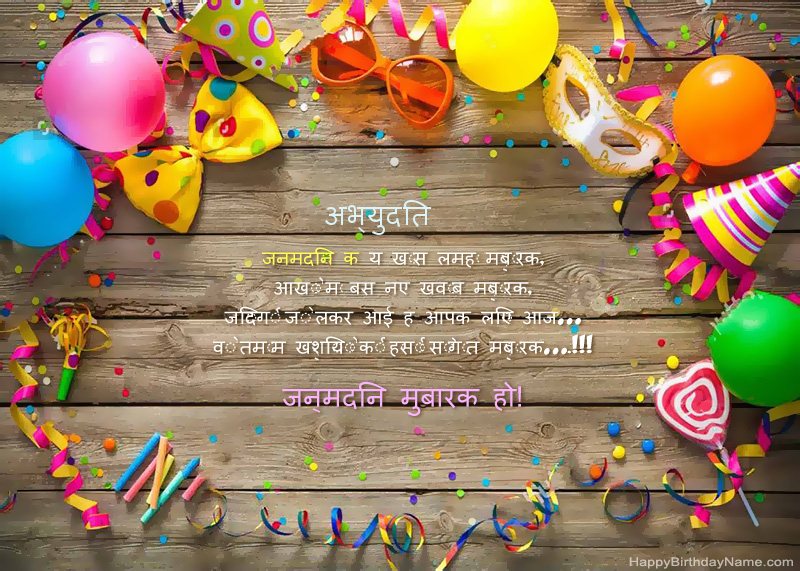 अभ्युदति
जनमदनि क य खास लमह मबारक,
आखों में बस नए खवाब मबारक,
जदिगी जो लेकर आई ह आपक लएि आज...
वो तमाम खशयिों की हसीं सौगात मबारक...!!!
जन्मदनि मुबारक हो!
HappyBirthdayName.com